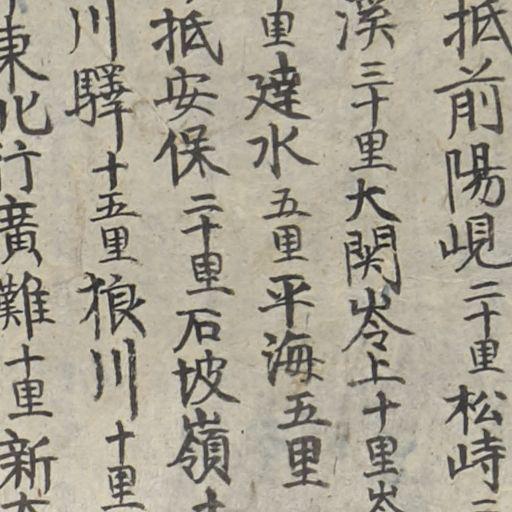 抵前陽峴二十里松峙
溪三十里大関岺上十里岺
里建水五里平海五里
抵安保二十里石坡嶺十
川驛十五里狼川十里
東北行廣灘十里新